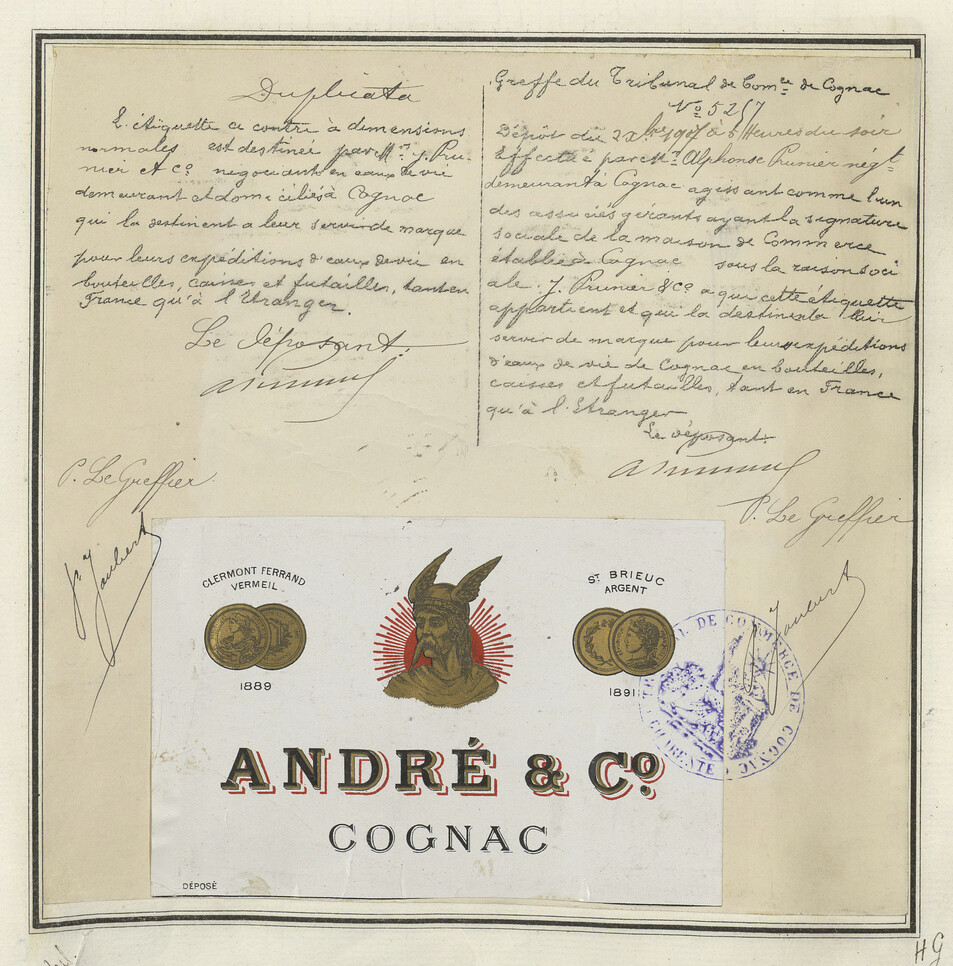 Duplicata
L'étiquette ci contre à dimensions
normales est destinée par Mr. J. Pru-
nier et Co. negociants en eaux de vie
demeurant et domiciliés à Cognac
qui la destinent a leur servir de marque
pour leurs expéditions d'eaux de vie en
bouteilles, caisses et futailles, tant en
France qu'à l'Etranger.
Le Déposant.
P. Le Greffier.
Greffe du Tribunal de Comce de Cognac
No 5217
Dépôt du 2 Xbre 1907 à Heures du soir
Effectué par Mr. Alphonse Prunier négt.
demeurant à Cognac agissant comme l'un
des associés gérants ayant la signature
sociale de la maison de Commerce
établie à Cognac sous la raison soci
ale. J. Prunier & Co a qui cette étiquette
appartient et qui la destine à lui
servir de marque pour leurs expéditions
d'eaux de vie de Cognac en bouteilles,
caisses et futailles, tant en France
qu'à l'Etranger
Le déposant.
P. Le Greffier
CLERMONT FERRAND
VERMEIL
1889
ST BRIEUC
ARGENT
1891
ANDRÉ & Co.
COGNAC
DÉPOSÉ
DE COMMERCE DE COGNAC
HG